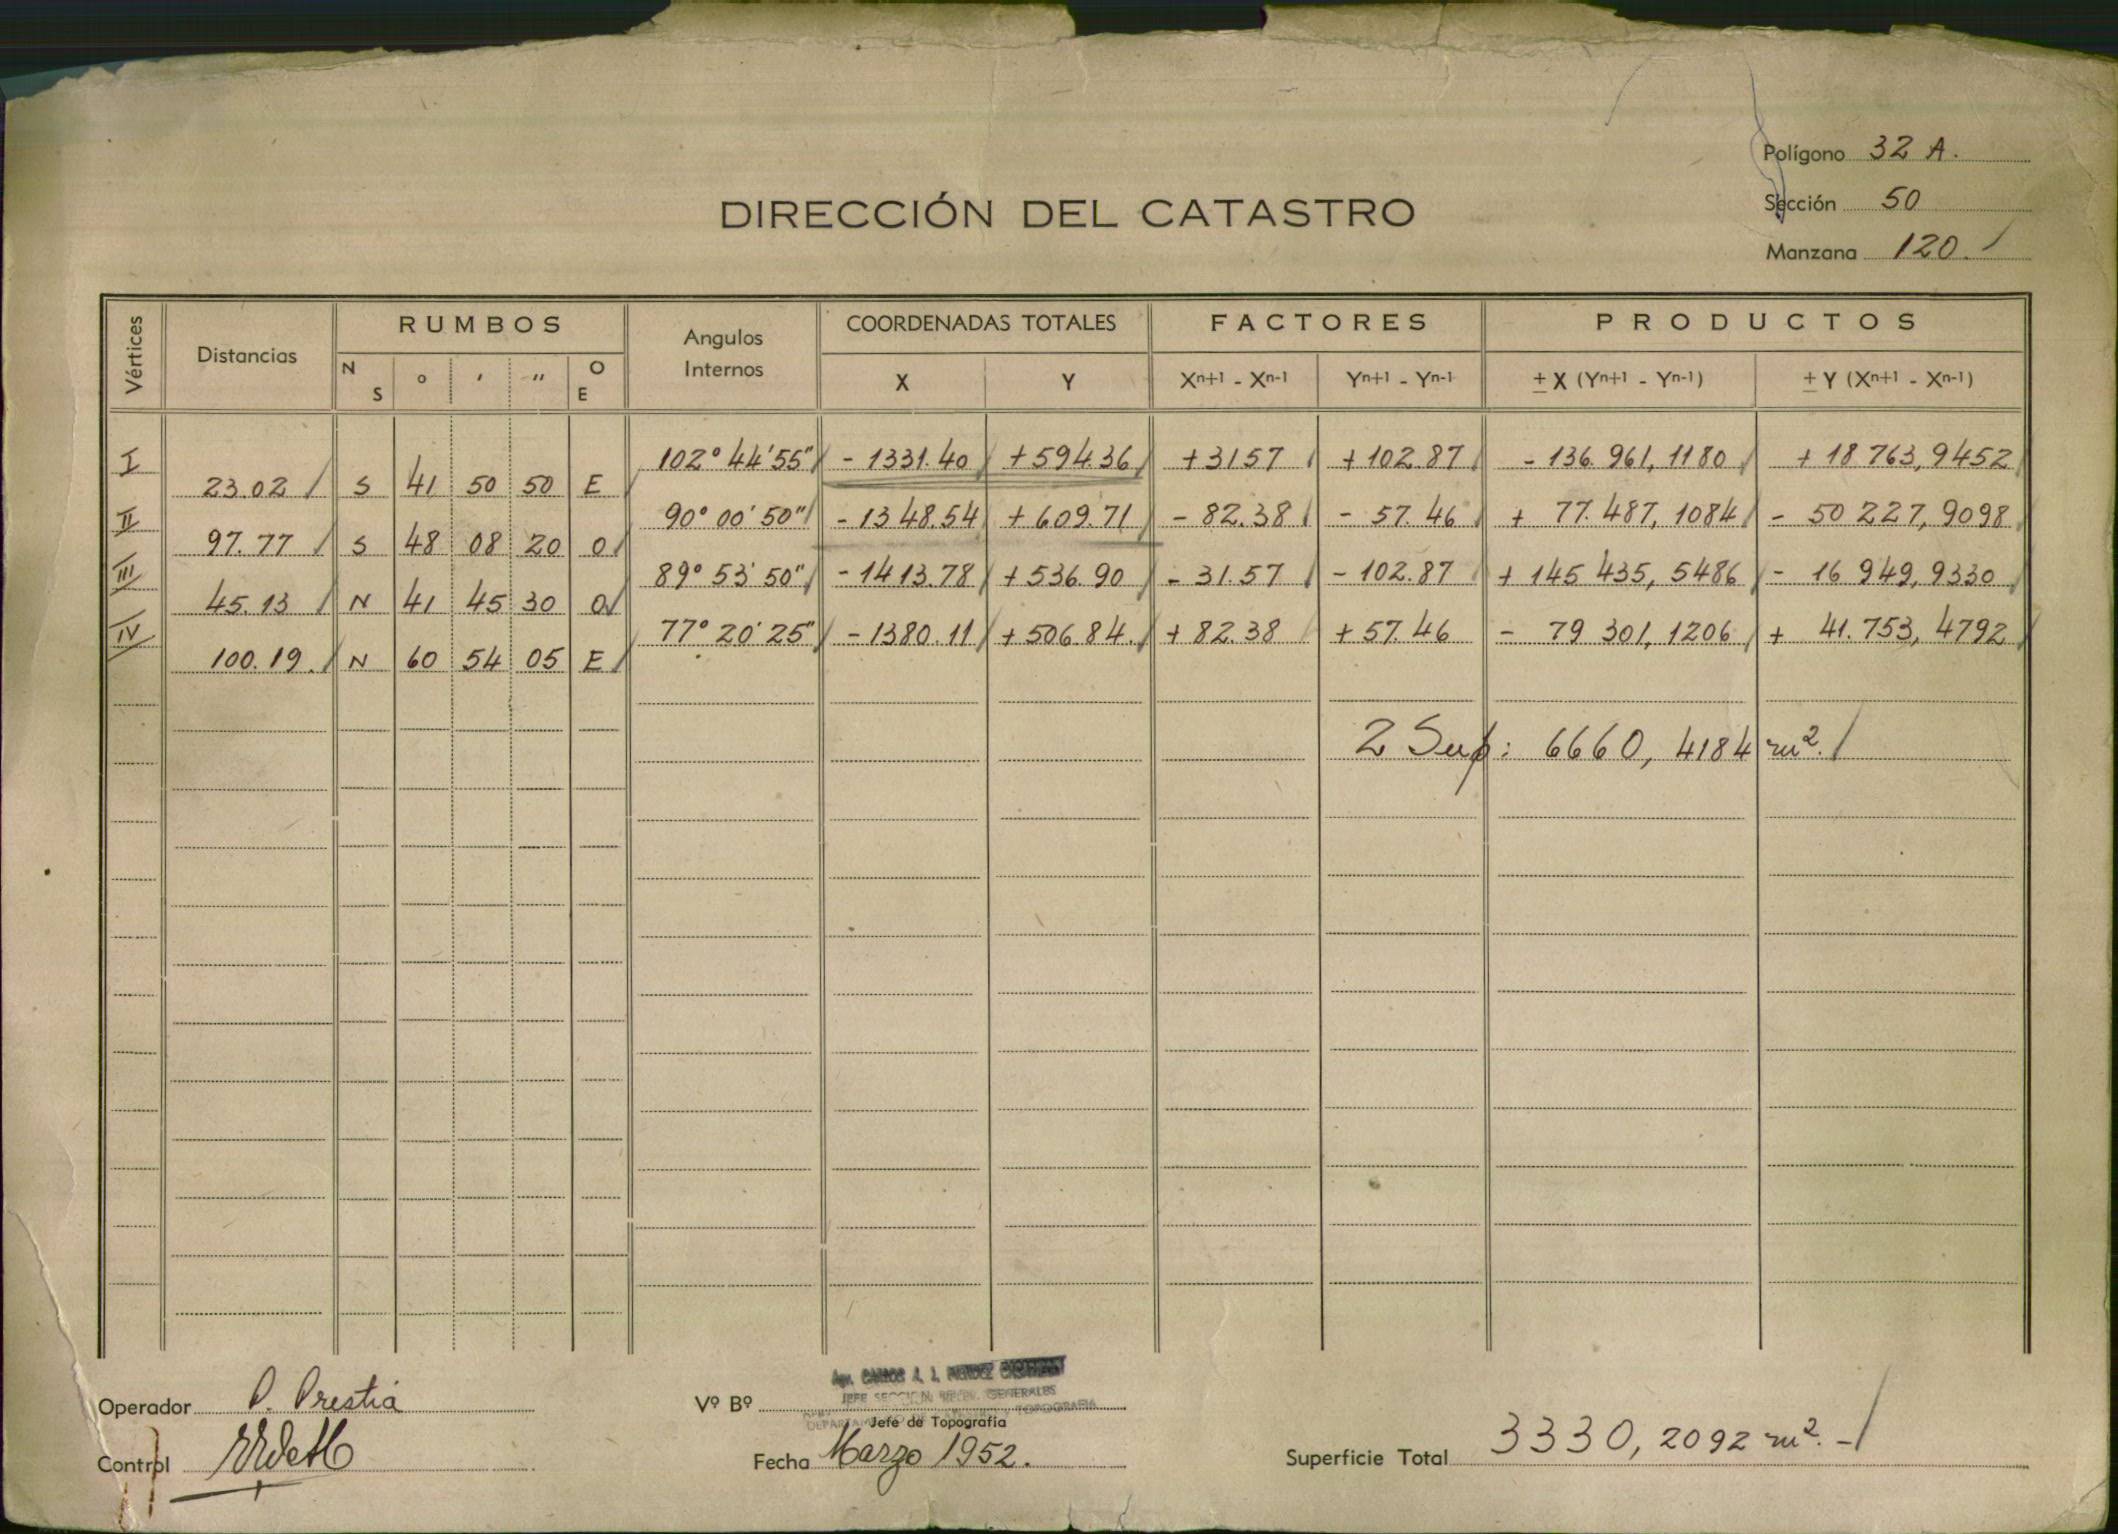 Polígono 32 A.
Sección 50
Manzana 120.
DIRECCIÓN DEL CATASTRO
Vértices Distancias RUMBOS Angulos Internos COORDENADAS TOTALES FACTORES PRODUCTOS
N S ° ' " O E X Y Xn+1 - Xn-1 Yn+1 - Yn-1 ± X (Yn+1 - Yn-1) ± Y (Xn+1 - Xn-1)
I 102° 44' 55" - 1331.40 + 594.36 + 31 57 + 102.87 - 136.961, 1180 + 18 763, 9452
23.02 S 41 50 50 E
II 90° 00' 50" - 1348.54 + 609.71 - 82.38 - 57.46 + 77.487, 1084 - 50 227, 9098
97.77 S 48 08 20 O
III 89° 53' 50" - 1413.78 + 536.90 - 31.57 - 102.87 + 145 435, 5486 - 16 949, 9330
45.13 N 41 45 30 O
IV 77° 20' 25" - 1380.11 + 506.84. + 82.38 + 57.46 - 79 301, 1206 + 41.753, 4792
100.19. N 60 54 05 E
2 Sup: 6660, 4184 m².
Operador P. Prestia
Vº Bº
CARLOS A. J. MENDEZ
JEFE SECCION GENERALES
DEPARTAMENTO DE CATASTRO Y TOPOGRAFIA
Jefe de Topografía
Control
Fecha Marzo 1952.
Superficie Total 3330, 2092 m². -